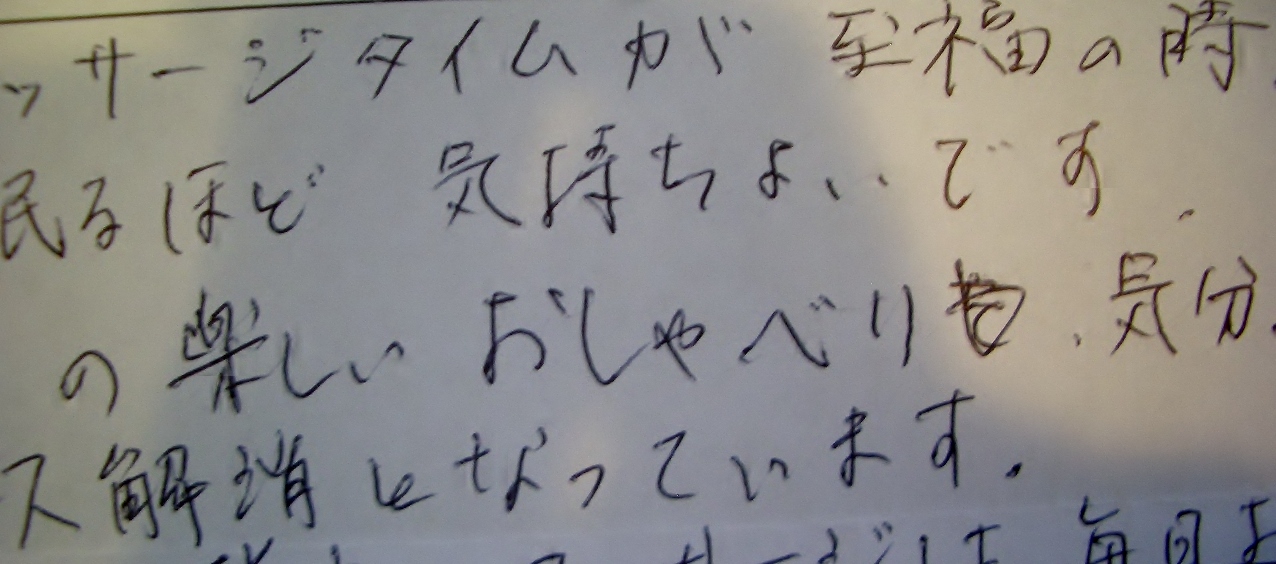 ッサージタイムが 至福の時
眠るほど 気持ちよいです.
の楽しい おしゃべりも、気分
ス解消となっています。
サージは 毎日